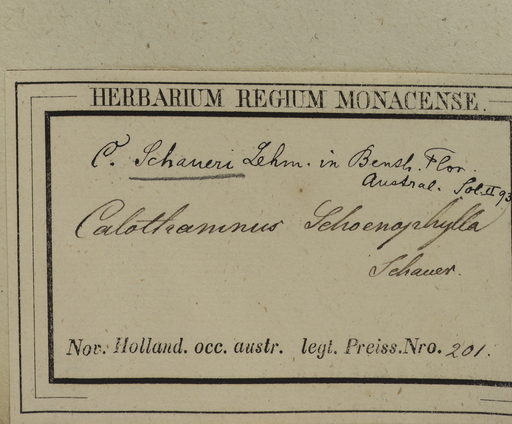 HERBARIUM REGIUM MONACENSE.
C. Schaueri Lehm. in Benth. Flor.
Austral. Vol. II 93
Calothamnus Schoenophylla
Schauer.
Nov. Holland. occ. austr. legt. Preiss. Nro. 201.